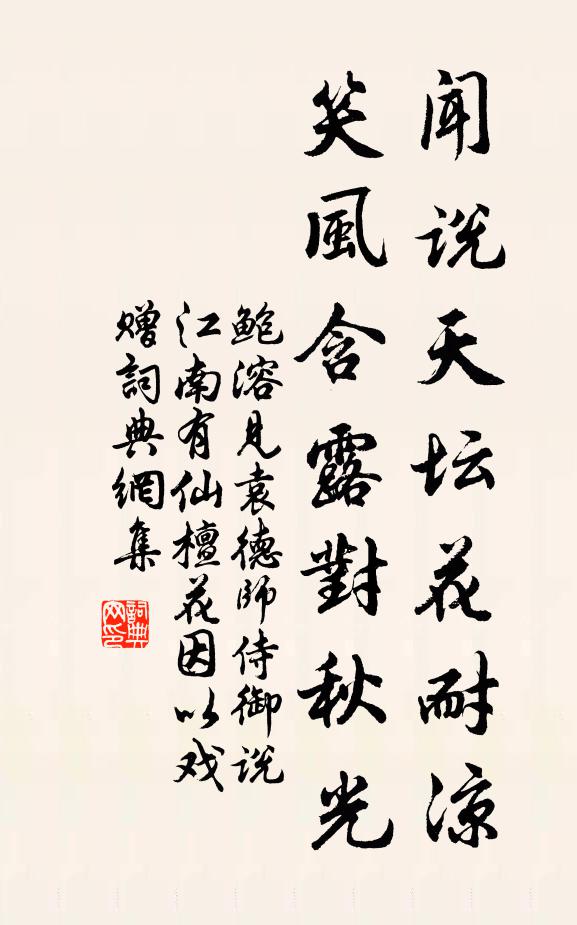 闻说天坛花耐凉
笑風含露對秋光
鲍溶见袁德师侍御说
江南有仙檀花因以戏
赠詞典網集
詞典
网印